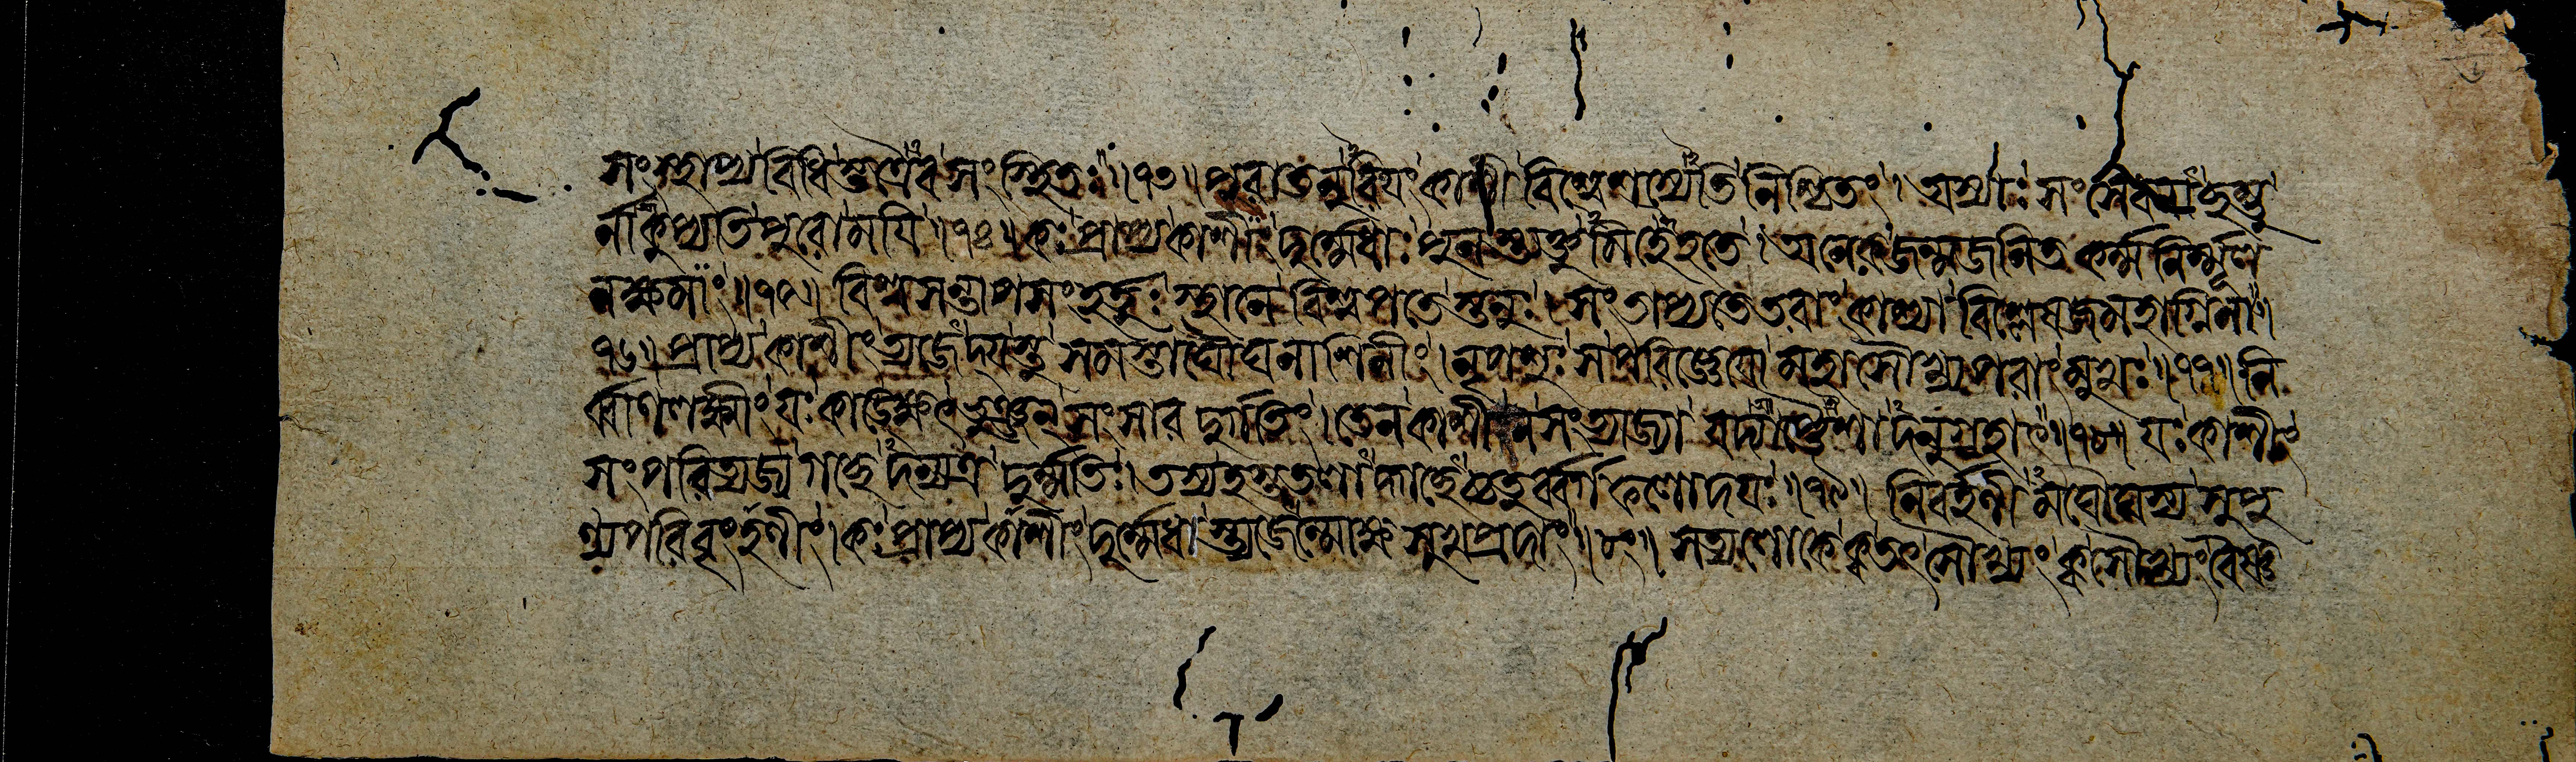 সংস্থাপ্য বিধিস্তত্রৈব সংস্থিতঃ॥৭৩॥ পুরাতনুরিয়ং কাশী বিশ্বেশস্যেতি নিশ্চিতং। অস্যাঃ সংসেবনাচ্ছম্ভু
র্নাকুপ্যতি পুরো ময়ি॥৭৪॥ কঃ প্রাপ্য কাশীং দুর্ম্মেধাঃ পুনস্ত্যক্তুমিহেহতে। অনেকজন্মজনিতকর্ম্মনির্ম্মূলন
ক্ষমাং॥৭৫॥ বিশ্বসন্তাপসংহর্ত্তুঃ স্থানে বিশ্বপতেস্তনুঃ। সংতাপ্যতেতরাং কাশ্যা বিশ্লেষজমহাগ্নিনা।
৭৬॥ প্রাপ্য কাশীং ত্যজেদ্যস্তু সমস্তাঘৌঘনাশিনীং। নৃপশুঃ স পরিজ্ঞেয়ো মহাসৌখ্যপরাংমুখঃ॥৭৭॥ নি
র্ব্বাণলক্ষ্মীং যঃ কাঙ্ক্ষেৎ ত্যক্ত্বা সংসারদুর্গতিং। তেন কাশী ন সংত্যাজ্যা যদ্যাপ্তৈশাদনুগ্রহাৎ॥৭৮॥ যঃ কাশীং
সংপরিত্যজ্য গচ্ছেদন্যত্র দুর্ম্মতিঃ। তস্য হস্ততলাদ্গচ্ছেচ্চতুর্ব্বর্গফলোদয়ঃ॥৭৯॥ নিবর্হণীমঘৌঘস্য সুপু
ণ্যপরিবৃংহণীং। কঃ প্রাপ্য কাশীং দুর্ম্মেধাস্ত্যজেন্মোক্ষসুখপ্রদাং॥৮০॥ সত্যলোকে ক্ব তৎসৌখ্যং ক্ব সৌখ্যং বৈষ্ণ